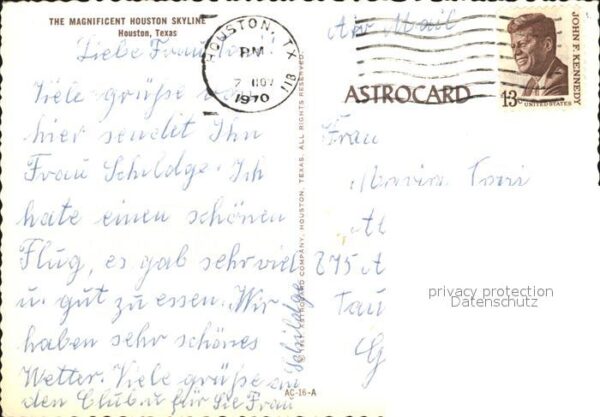 THE MAGNIFICENT HOUSTON SKYLINE
Houston, Texas
Liebe Frau
Viele grüße von
hier sendet Ihn
Frau Schildge. Ich
hate einen schönen
Flug, es gab sehr viel
u. gut zu essen. Wir
haben sehr schönes
Wetter. Viele grüße an
den Club u für Sie Frau
Schildge
HOUSTON, TX
PM
7 NOV
1970
Air Mail
ASTROCARD
JOHN F. KENNEDY
13c
UNITED STATES
Frau
875 A
Tau
G
ASTROCARD COMPANY, HOUSTON, TEXAS. ALL RIGHTS RESERVED.
AC-16-A
privacy protection
Datenschutz